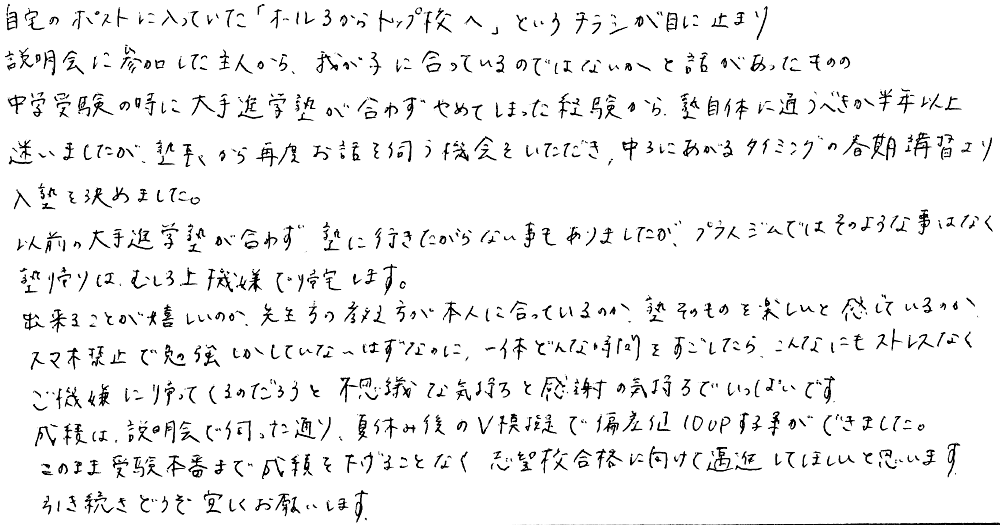 自宅のポストに入っていた「オール3からトップ校へ」というチラシが目に止まり
説明会に参加した主人から、我が子に合っているのではないかと話があったものの
中学受験の時に大手進学塾が合わずやめてしまった経験から、塾自体に通うべきか半年以上
迷いましたが、塾長から再度お話を伺う機会をいただき、中3にあがるタイミングの春期講習より
入塾を決めました。
以前の大手進学塾が合わず、塾に行きたがらない事もありましたが、プラスジムではそのような事はなく
塾帰りは、むしろ上機嫌で帰宅します。
出来ることが嬉しいのか、先生方の教え方が本人に合っているのか、塾そのものを楽しいと感じているのか、
スマホ禁止で勉強しかしていないはずなのに、一体どんな時間をすごしたら、こんなにもストレスなく
ご機嫌に帰ってくるのだろうと不思議な気持ちと感謝の気持ちでいっぱいです。
成績は、説明会で伺った通り、夏休み後のV模擬で偏差値10UPする事ができました。
このまま受験本番まで成績を下げることなく志望校合格に向けて邁進してほしいと思います。
引き続きどうぞ宜しくお願いします。